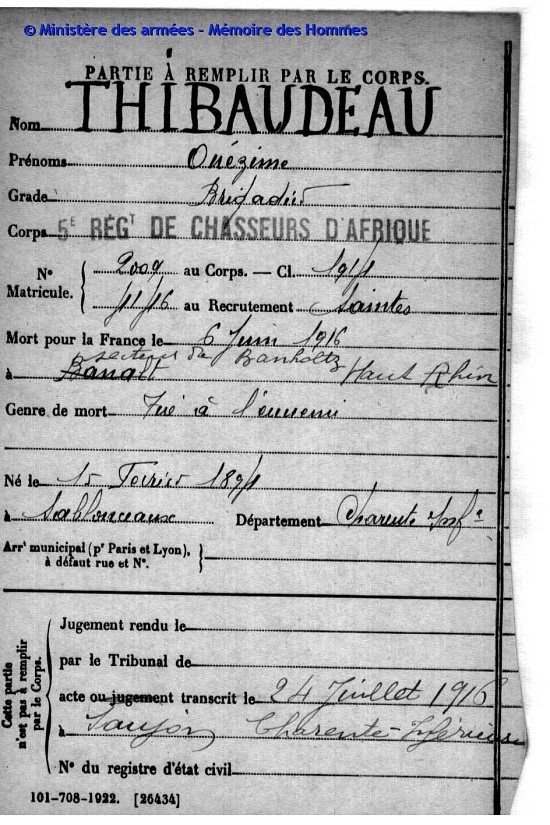 © Ministère des armées - Mémoire des Hommes
PARTIE À REMPLIR PAR LE CORPS.
Nom THIBAUDEAU
Prénoms Onézime
Grade Brigadier
Corps 5E RÉGT DE CHASSEURS D'AFRIQUE
N° Matricule. { 2009 au Corps. — Cl. 1914
1116 au Recrutement Saintes
Mort pour la France le 6 Juin 1916
secteur de Banholtz
à Haut Rhin
Genre de mort Tué à l'ennemi
Né le 15 Février 1894
à Sablonceaux Département Charente Infre
Arrt municipal (pr Paris et Lyon), à défaut rue et N°. }
Cette partie n'est pas à remplir par le Corps.
Jugement rendu le
par le Tribunal de
acte ou jugement transcrit le 24 Juillet 1916
à Saujon Charente-Inférieure
N° du registre d'état civil
101-708-1922. [26434]